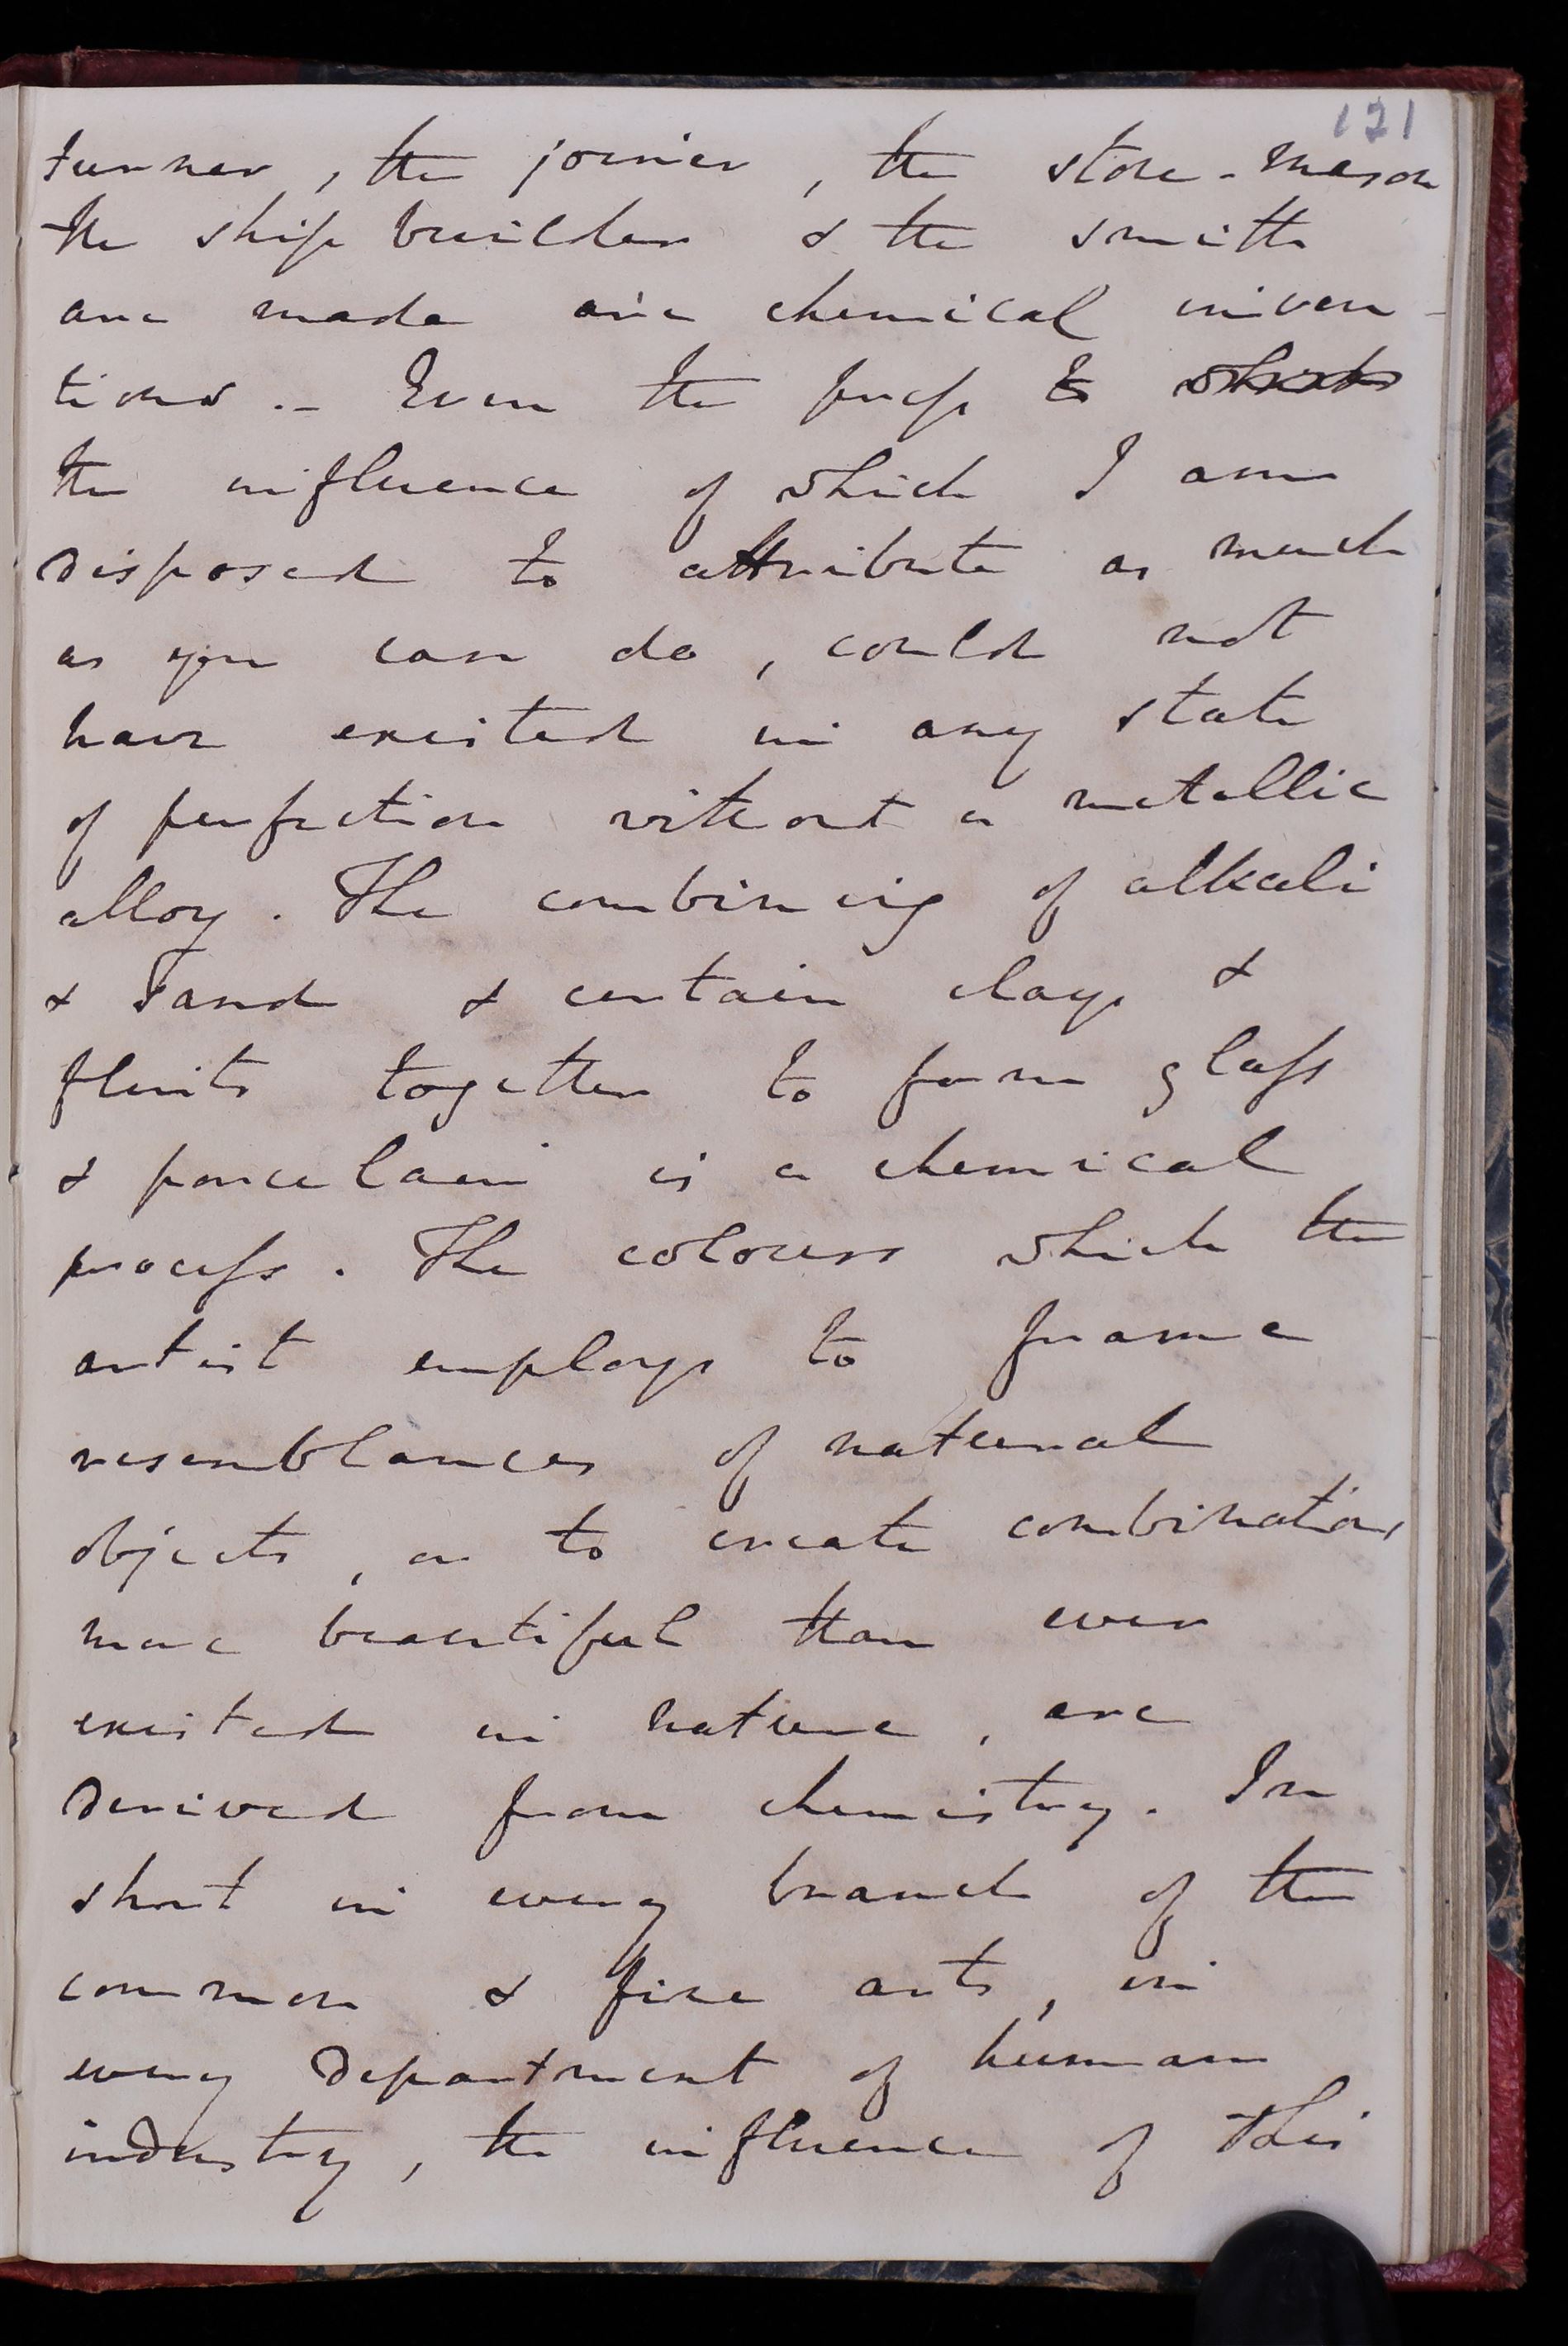 121
turner, the joiner, the stone-mason
the ship builder & the smith
are made are chemical inven-
tions.- Even the press to which
the influence of which I am
disposed to attribute as much
as you can do, could not
have existed in any state
of perfection without a metallic
alloy. The combining of alkali
& sand & certain clays &
flints together to form glass
& porcelain is a chemical
process. The colours which the
artist employs to frame
resemblances of natural
objects, or to create combinations
more beautiful than ever
existed in nature, are
derived from chemistry. In
short in every branch of the
common & fine arts, in
every department of human
industry, the influence of this